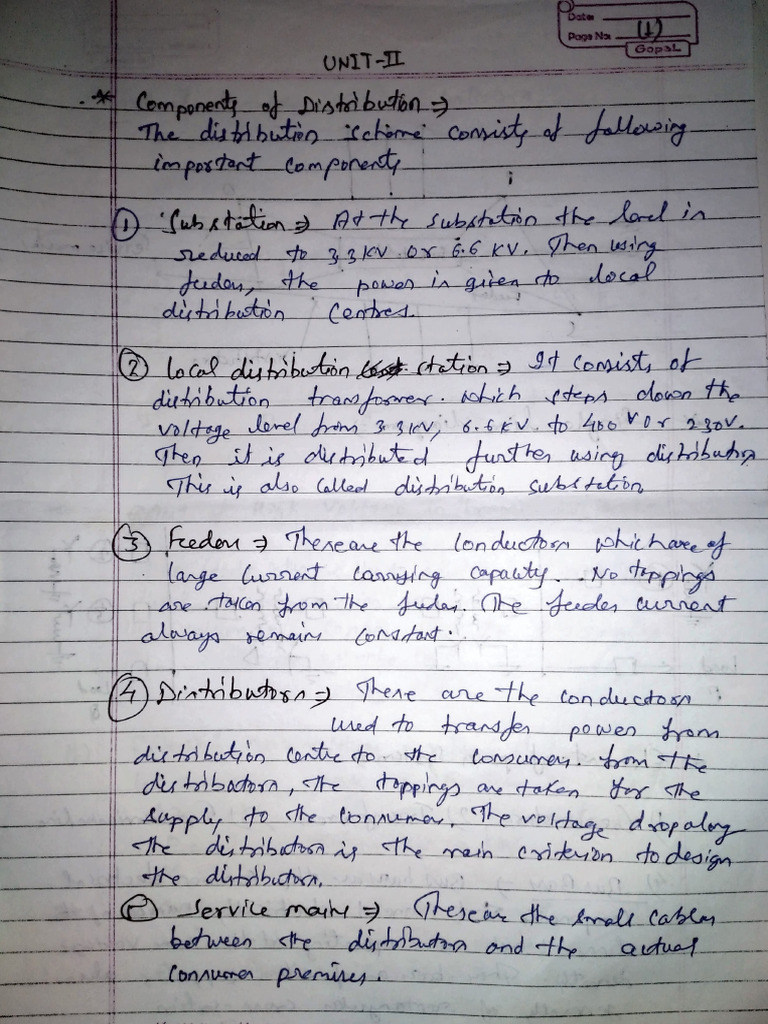 Date:
Page No: (1)
GopaL
UNIT-II
* Components of Distribution ⇒
The distribution scheme consists of following
important components
① Substation ⇒ At the substation the level is
reduced to 3,3 KV or 6.6 KV. Then using
feeders, the power is given to local
distribution Centres.
② Local distribution station ⇒ It consists of
distribution transformer. which steps down the
voltage level from 3.3KV, 6.6 KV to 400 V or 230V.
Then it is distributed further using distributors
This is also called distribution substation
③ Feeders ⇒ These are the conductors which are of
large current carrying capacity. No tappings
are taken from the feeders. The feeder current
always remains constant.
④ Distributors ⇒ These are the conductors
used to transfer power from
distribution centre to the consumers. from the
distributors, the tappings are taken for the
supply to the consumer. The voltage drop along
the distributors is the main criterion to design
the distributors.
⑤ Service mains ⇒ These are the small cables
between the distributors and the actual
consumer premises.